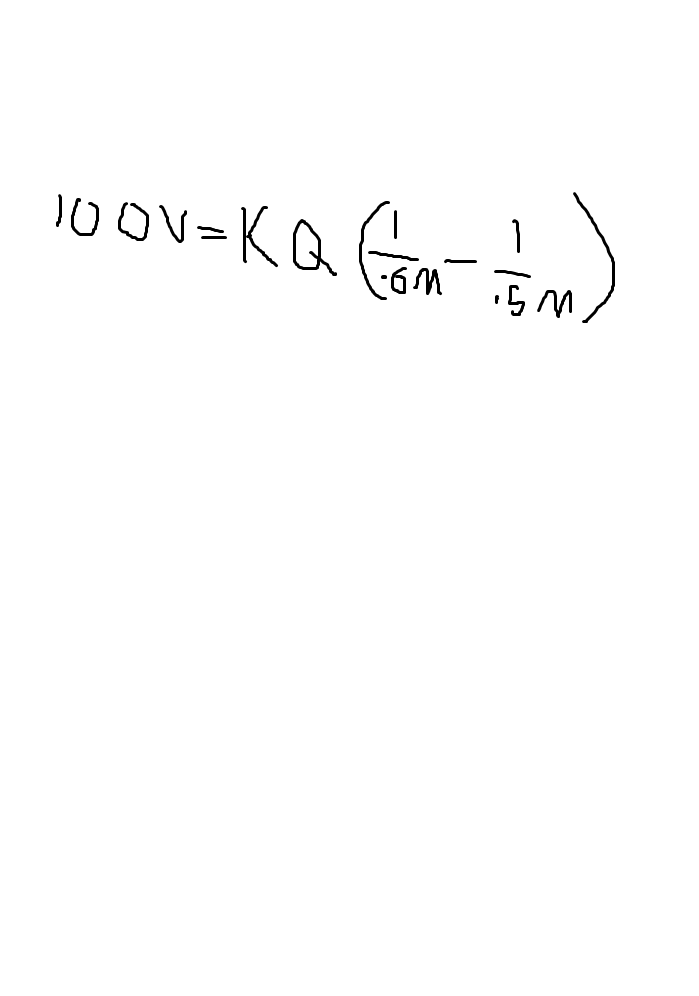 100V=KQ(1/.6m - 1/.5m)